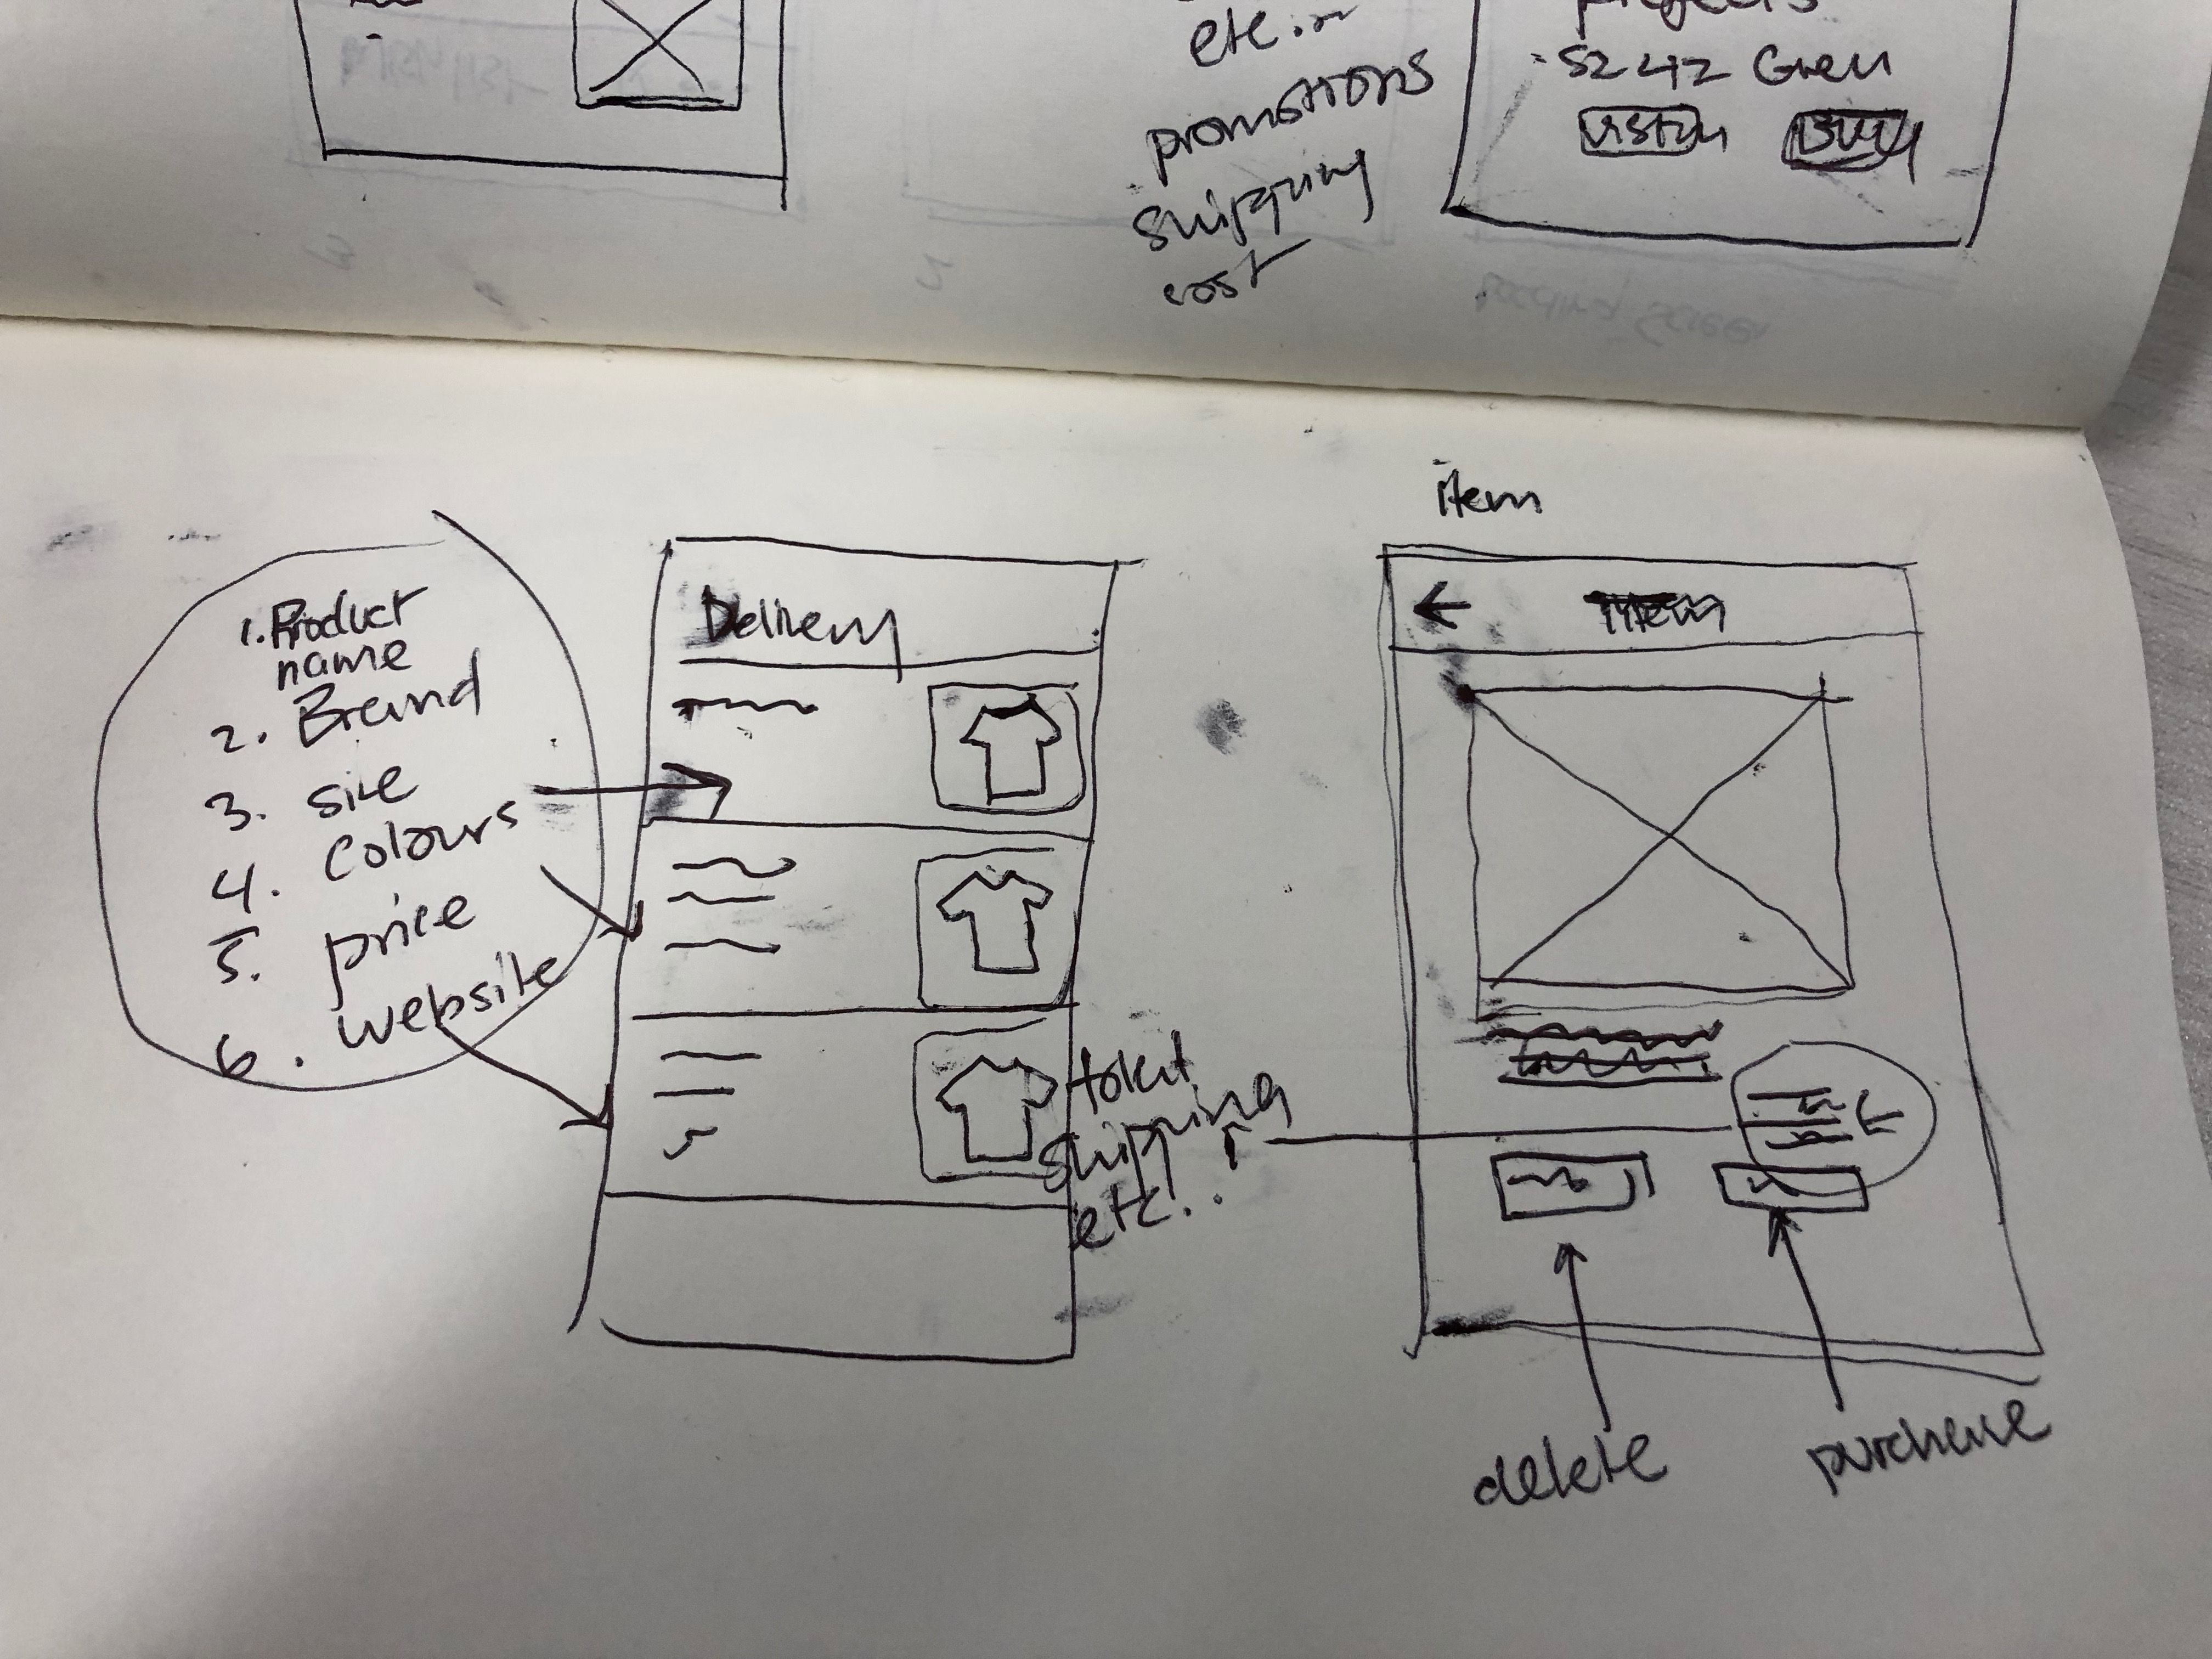 etc...
promotions
shipping
cost
projects
S242 Green
Buy
item
1. Product
name
2. Brand
3. size
4. colours
5. price
6. website
Delivery
item
total
shipping
etc..
delete
purchase